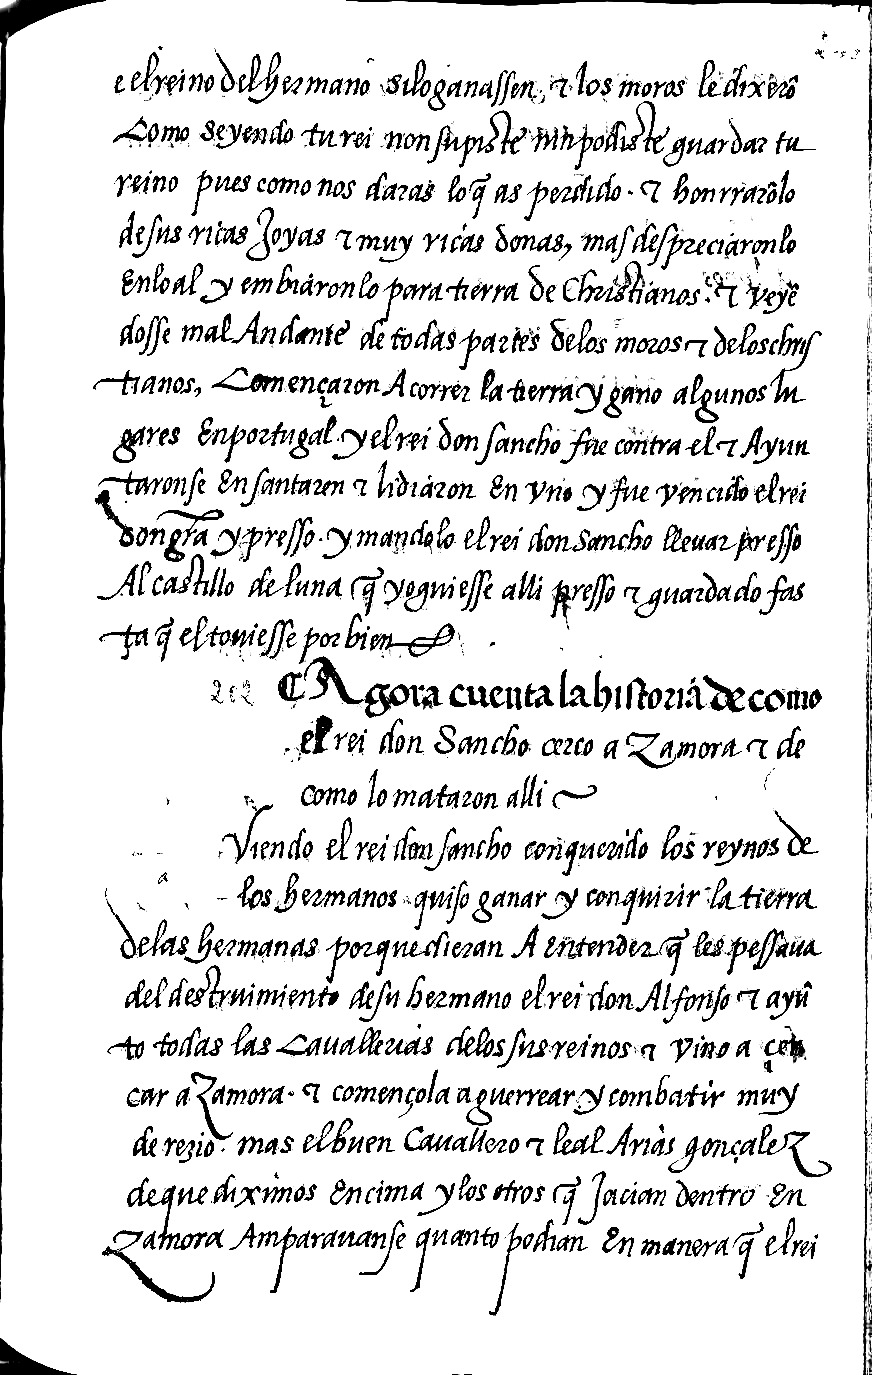 e el reino del hermano si lo ganassen, ⁊ los moros le dixerõ
Como seyendo tu rei non supiste nin podiste guardar tu
reino pues como nos daras lo q̃ as perdido. ⁊ honrrarõlo
de sus ricas Joyas ⁊ muy ricas donas, mas despreciaronlo
En lo al y embiaronlo para tierra de Christianos. ⁊ veyẽ
dosse mal Andante de todas partes de los moros ⁊ de los chris
tianos, Començaron A correr la tierra y gano algunos lu
gares En portugal. y el rei don sancho fue contra el ⁊ Ayun
taronse En santaren ⁊ lidiaron En vno y fue vencido el rei
don gr̃a y presso. y mandolo el rei don Sancho lleuar presso
Al castillo de luna q̃ yoguiesse alli presso ⁊ guardado fas
ta q̃ el touiesse por bien
202 ¶ Agora cuenta la historia de como
el rei don Sancho cerco a Zamora ⁊ de
como lo mataron alli
Viendo el rei don sancho conquerido los reynos de
los hermanos quiso ganar y conquirir la tierra
de las hermanas porque dieran A entender q̃ les pessaua
del destruimiento de su hermano el rei don Alfonso ⁊ ayũ
to todas las Cauallerias de los sus reinos ⁊ vino a çer
car a Zamora. ⁊ començola a guerrear y combatir muy
de rezio. mas el buen Cauallero ⁊ leal Arias gonçalez
de que diximos Encima y los otros q̃ Jacian dentro En
Zamora Amparauanse quanto podian En manera q̃ el rei